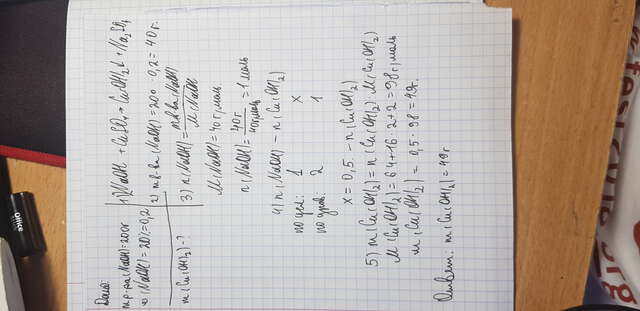 Office
Дано:
m р-ра (NaOH) = 200г
ω (NaOH) = 20% = 0,2
m(Cu(OH)₂) - ?
1) 2NaOH + CuSO₄ → Cu(OH)₂↓ + Na₂SO₄
2) m в-ва (NaOH) = 200 · 0,2 = 40 г.
3) n(NaOH) = m в-ва (NaOH) / M(NaOH)
M(NaOH) = 40 г/моль
n(NaOH) = 40г / 40г/моль = 1 моль
4) n(NaOH) - n(Cu(OH)₂)
по усл: 1 x
по уров: 2 1
x = 0,5 - n(Cu(OH)₂)
5) m(Cu(OH)₂) = n(Cu(OH)₂) · M(Cu(OH)₂)
M(Cu(OH)₂) = 64+16·2+2 = 98 г/моль
m(Cu(OH)₂) = 0,5 · 98 = 49г.
Ответ: m(Cu(OH)₂) = 49г